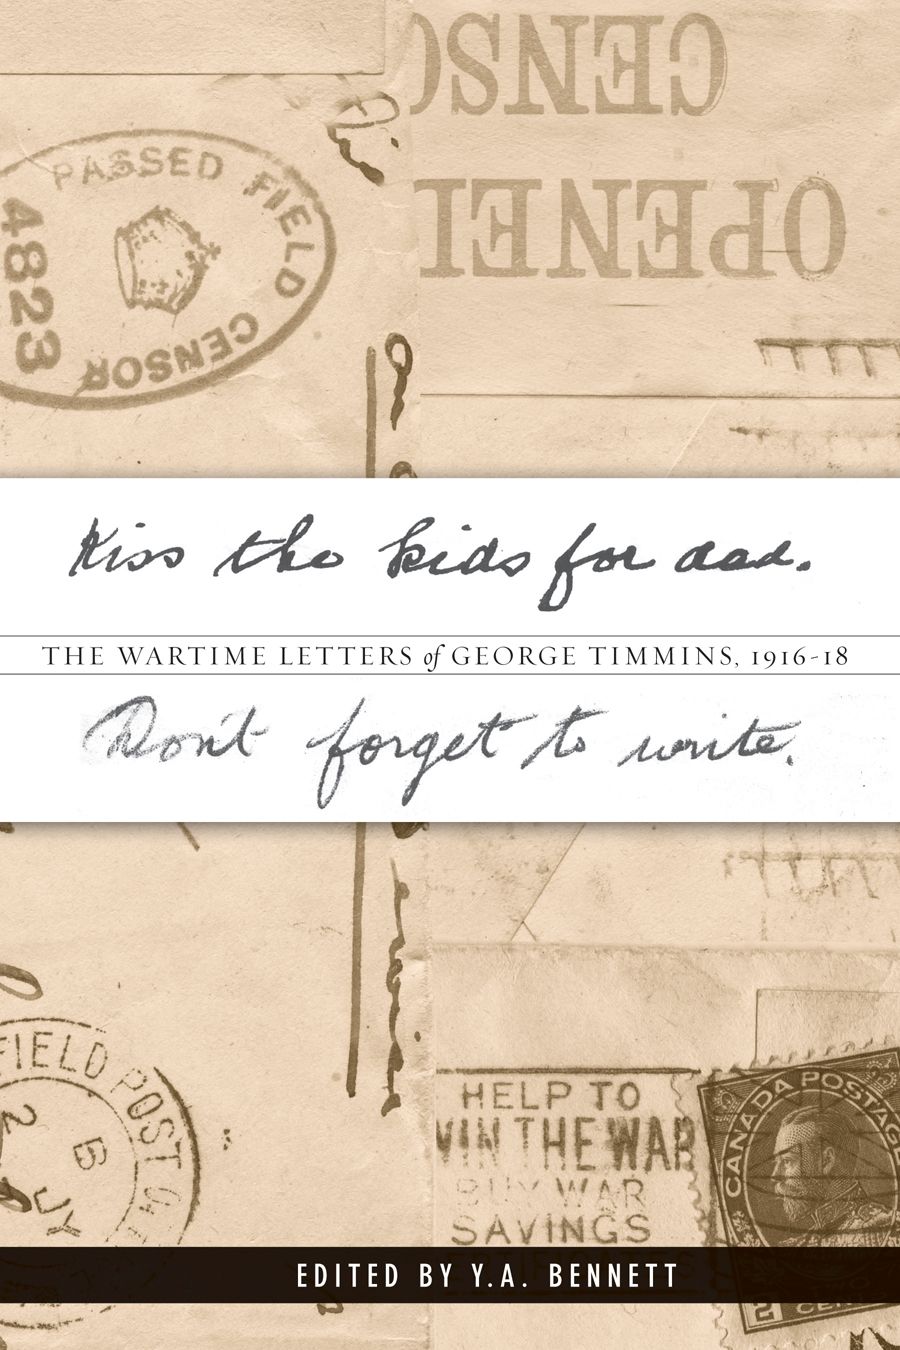 CENSO
OPENE
PASSED FIELD CENSOR
4823
Kiss the kids for dad.
THE WARTIME LETTERS of GEORGE TIMMINS, 1916-18
Don't forget to write.
FIELD POST
2
B
JY
HELP TO
WIN THE WAR
BUY WAR
SAVINGS
CERTIFICATES
CANADA POSTAGE
2 CENTS
EDITED BY Y.A. BENNETT